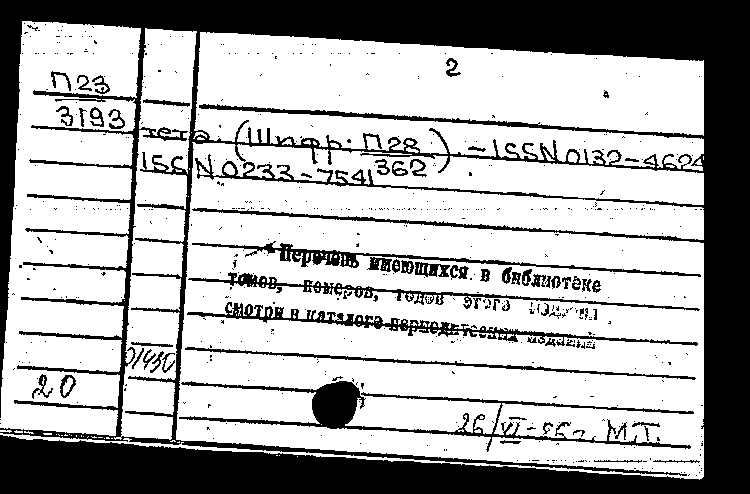 2
П23
3193
тета. (Шифр: П28/362). - ISSN 0132-4624
ISSN 0233-7541
Перечень имеющихся в библиотеке
томов, номеров, годов этого издания
смотри в каталоге периодических изданий
01430
20
26/VI-86 г. М.Т.